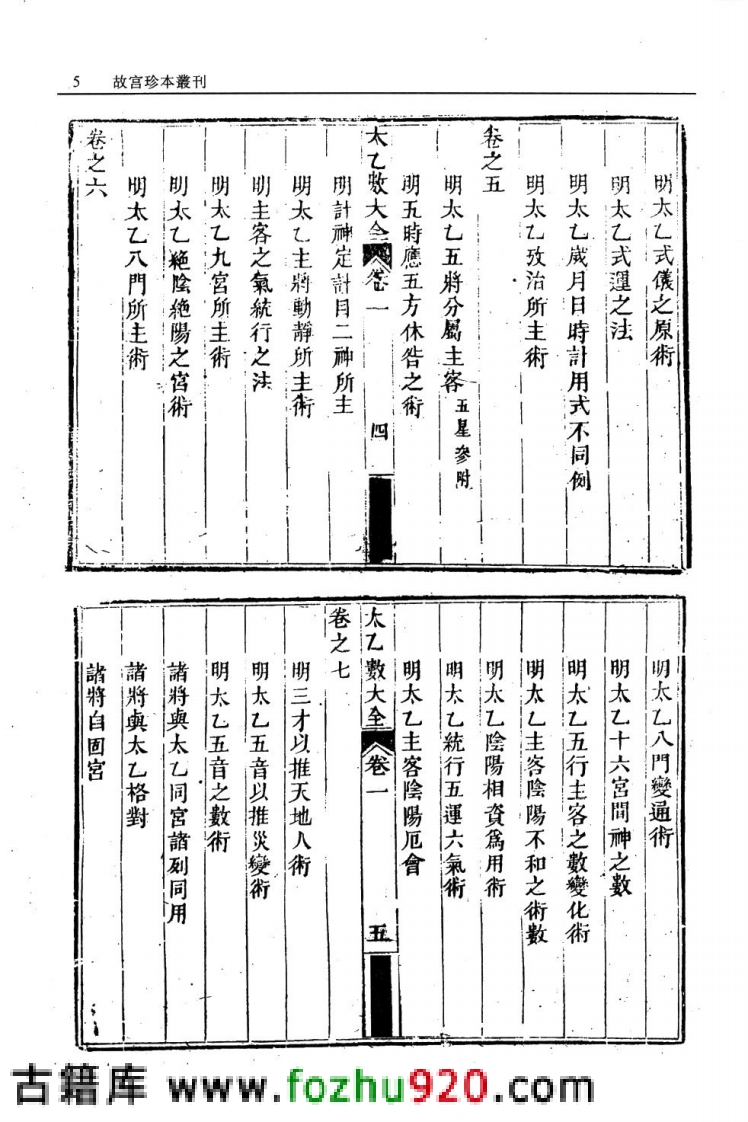 5 故宮珍本叢刊
明太乙式儀之原術
明太乙式運之法
明太乙歲月日時計用式不同例
明太乙攷治所主術
卷之五
明太乙五將分屬主客 五星參附
明五時應五方休咎之術
太乙數大全 卷一 四
明計神定計目二神所主
明太乙主將動靜所主術
明主客之氣統行之法
明太乙九宮所主術
明太乙絕陰絕陽之宮術
明太乙八門所主術
卷之六
明太乙八門變通術
明太乙十六宮間神之數
明太乙五行主客之數變化術
明太乙主客陰陽不和之術數
明太乙陰陽相資爲用術
明太乙統行五運六氣術
明太乙主客陰陽厄會
太乙數大全 卷一 五
卷之七
明三才以推天地人術
明太乙五音以推災變術
明太乙五音之數術
諸將與太乙同宮諸列同用
諸將與太乙格對
諸將自囬宮
古籍库 www.fozhu920.com